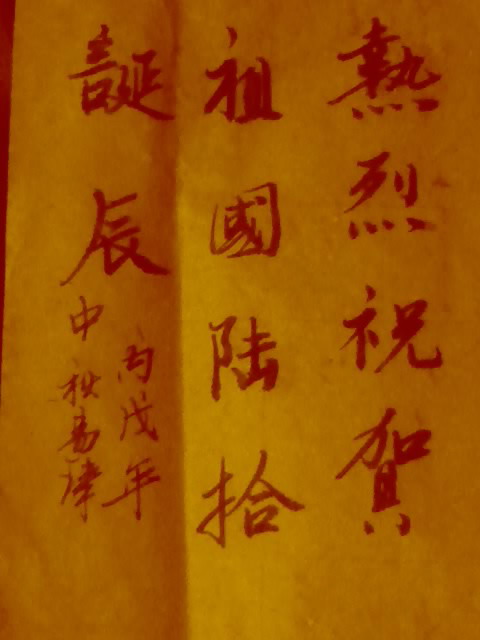 熱烈祝賀
祖國陸拾
誕辰
丙戌年
中秋